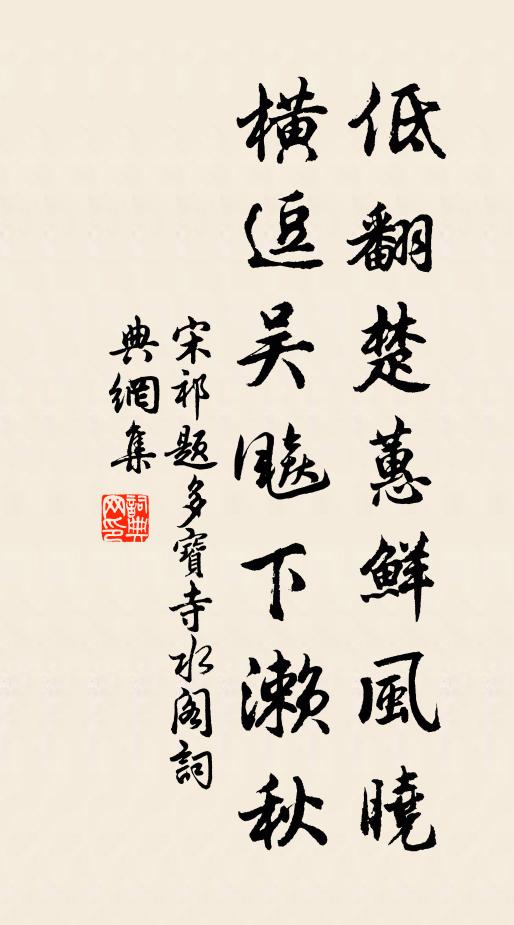 低翻楚蕙鮮風曉
橫逗吳飈下瀨秋
宋祁題多寶寺水閣詞
典網集
詞典
网印